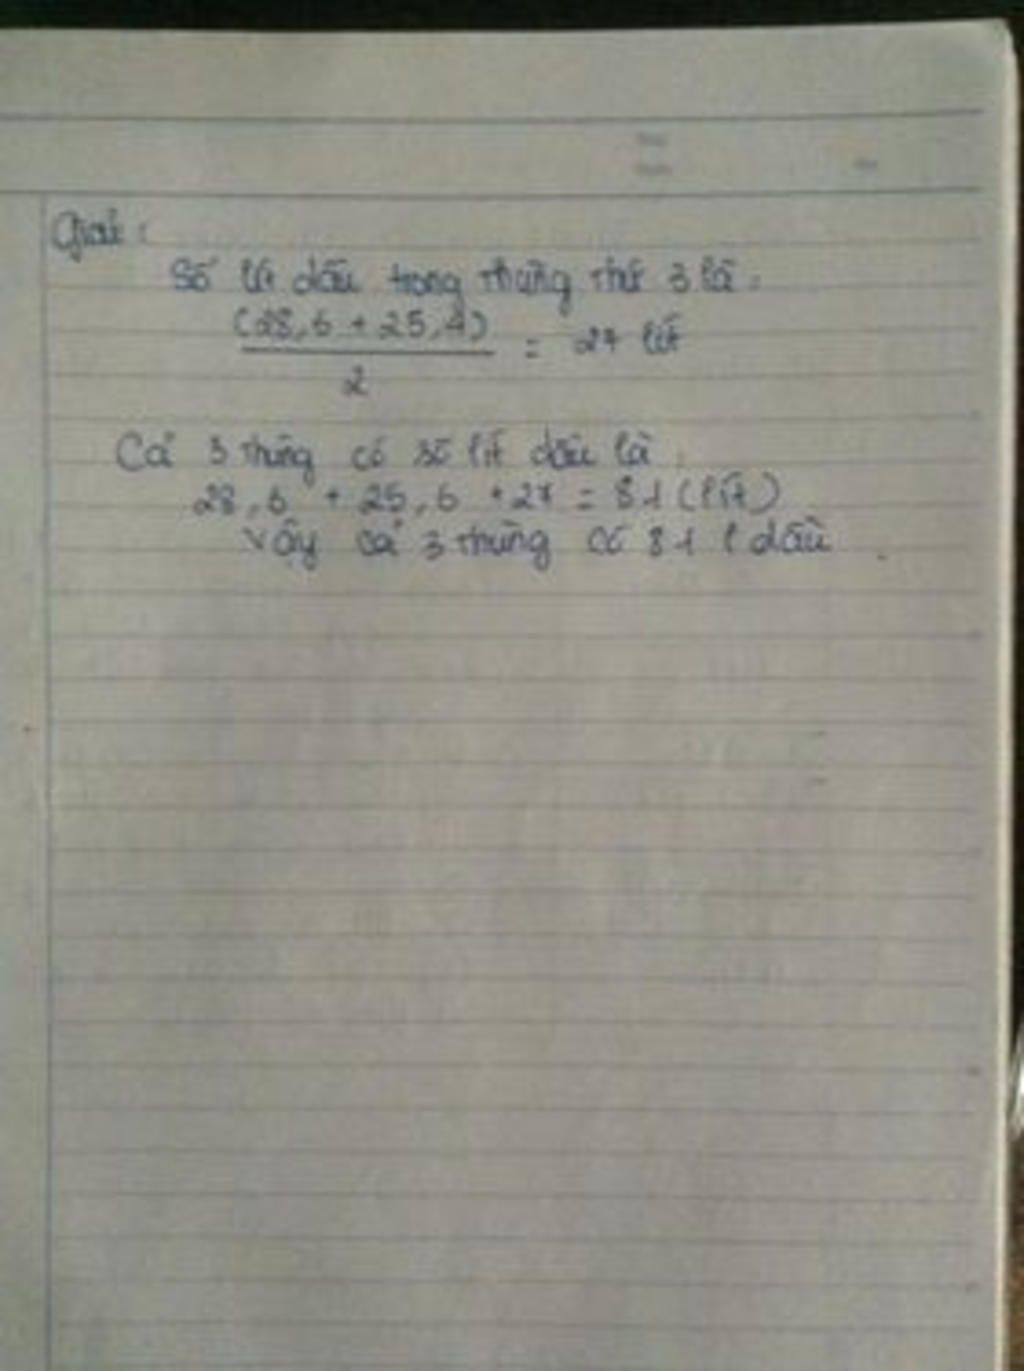 Giải:
Số lít dầu trong thùng thứ 3 là:
(28,6 + 25,4)
= 27 lít
2
Cả 3 thùng có số lít dầu là:
28,6 + 25,6 + 27 = 81 (lít)
Vậy cả 3 thùng có 81 l dầu